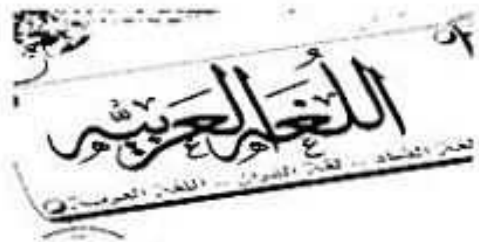 اللغة العربية
لغة الضاد -- لغة القرآن -- اللغة العربية